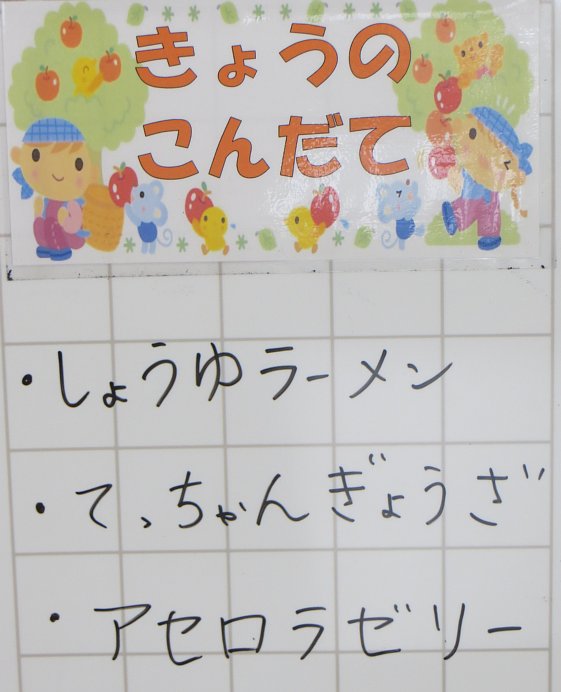 きょうの
こんだて
・しょうゆラーメン
・てっちゃんぎょうざ
・アセロラゼリー